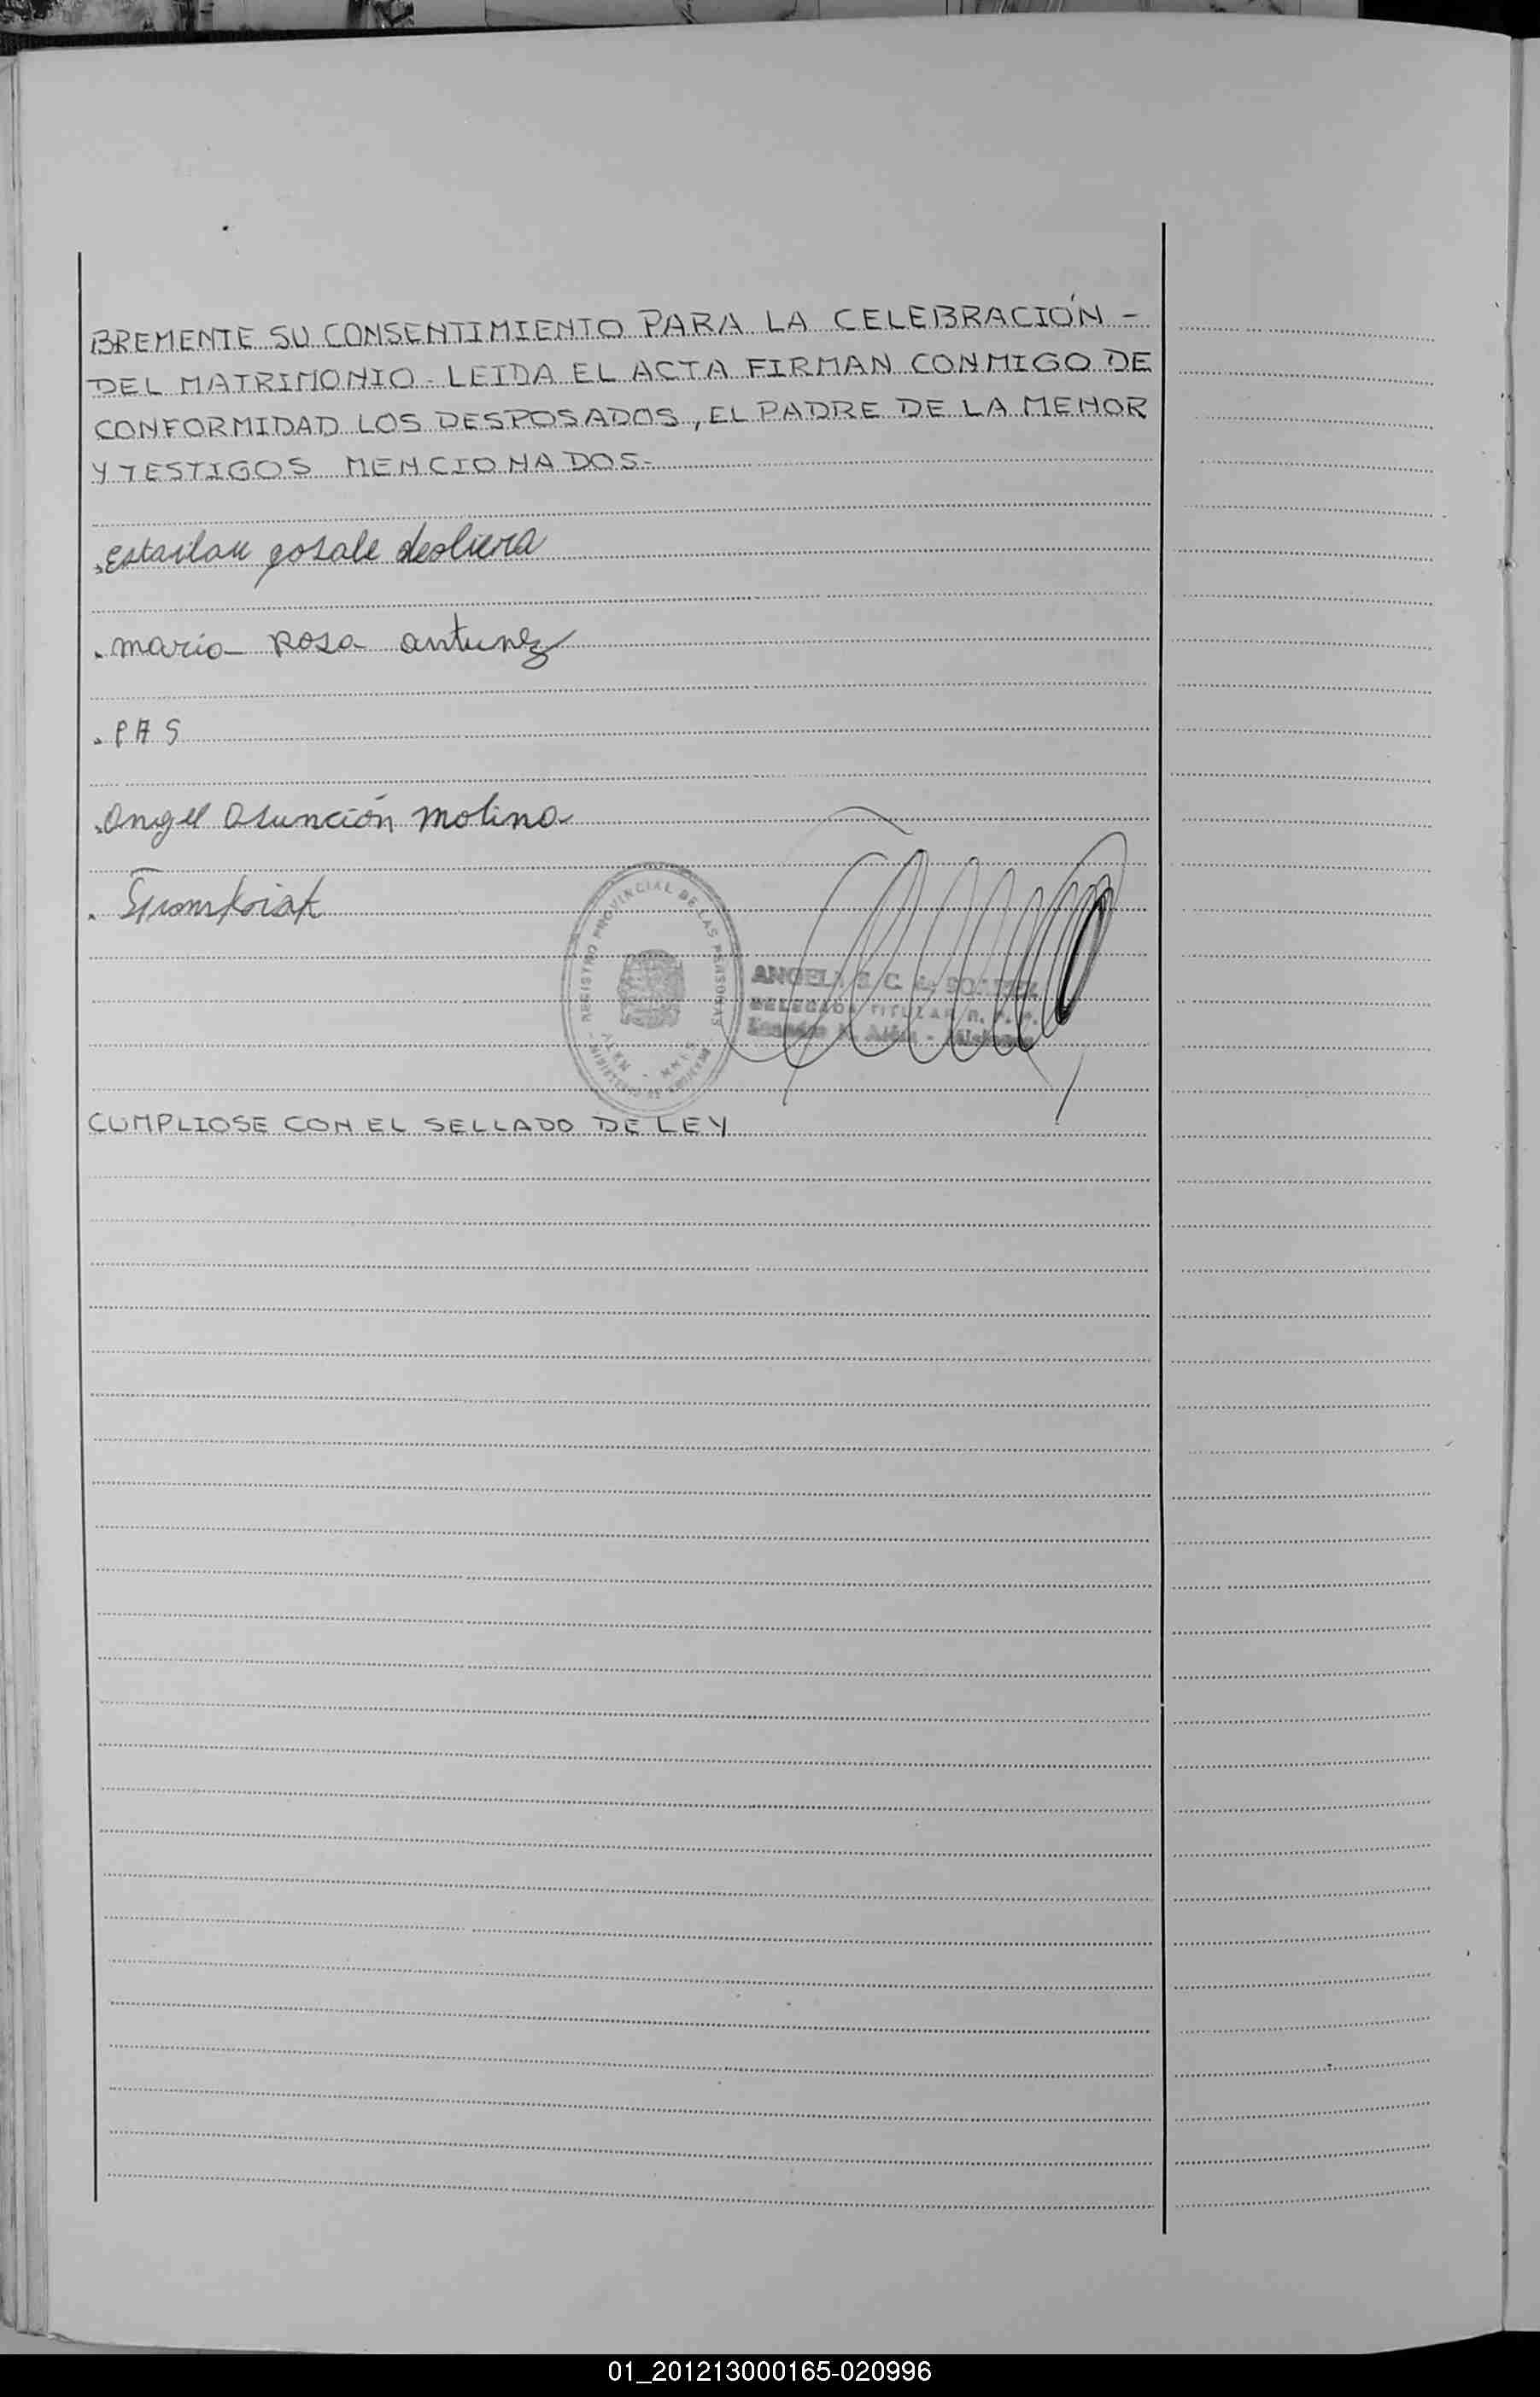 BREMENTE SU CONSENTIMIENTO PARA LA CELEBRACIÓN -
DEL MATRIMONIO - LEIDA EL ACTA FIRMAN CONMIGO DE
CONFORMIDAD LOS DESPOSADOS, EL PADRE DE LA MENOR
Y TESTIGOS MENCIONADOS-
maria Rosa antunez
P A S
Angel Asunción Molina
REGISTRO PROVINCIAL DE LAS PERSONAS
ANGELA S. C. de
DELEGADA TITULAR R. P. P.
CUMPLIOSE CON EL SELLADO DE LEY
01_201213000165-020996